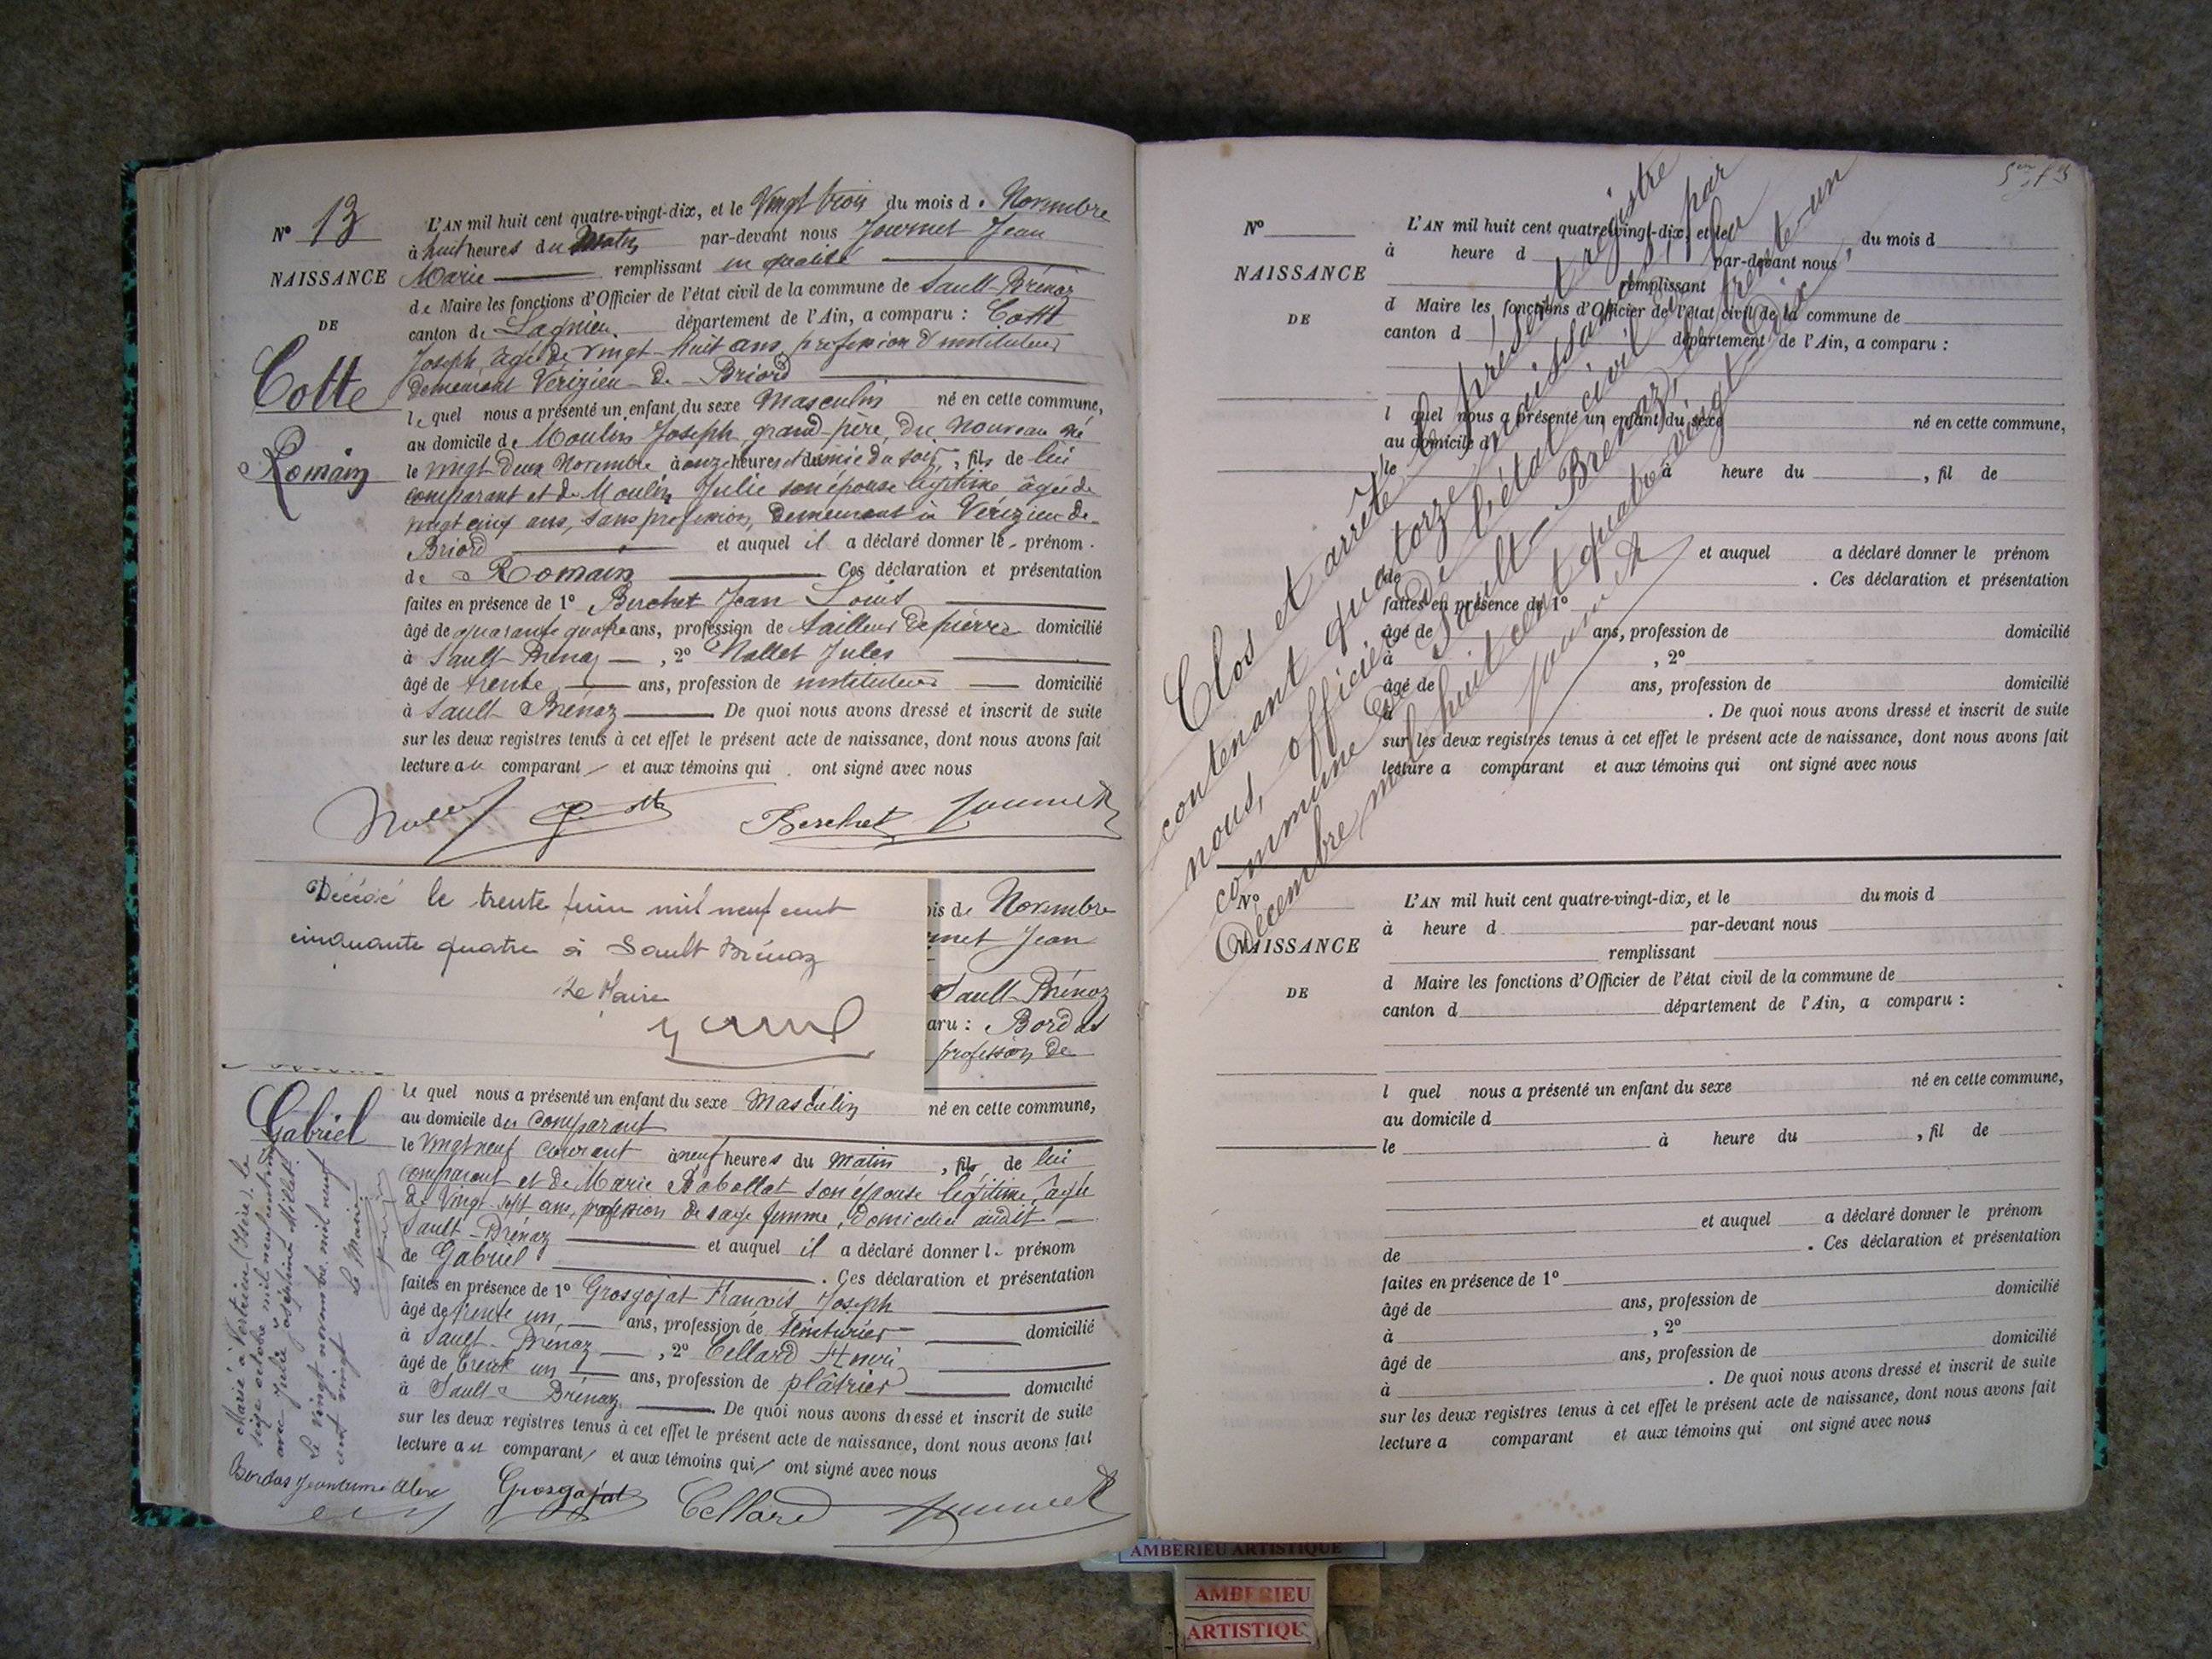 N° 13
NAISSANCE
DE
Cotte
Romain
L'AN mil huit cent quatre-vingt-dix, et le Vingt trois du mois de Novembre
à huit heures du Matin par-devant nous Journet Jean
Marie remplissant en qualité
de Maire les fonctions d'Officier de l'état civil de la commune de Sault-Brénaz
canton de Lagnieu département de l'Ain, a comparu : Cotte
Joseph, âgé de vingt-huit ans, profession d'instituteur
demeurant Vérizieu-de-Briord
lequel nous a présenté un enfant du sexe Masculin né en cette commune,
au domicile de Moulin Joseph, grand-père, du nouveau né
le vingt deux Novembre à onze heures et demie du soir, fils de lui
comparant et de Moulin Julie son épouse légitime âgée de
vingt cinq ans, sans profession, demeurant à Vérizieu de-
Briord et auquel il a déclaré donner le prénom
de Romain Ces déclaration et présentation
faites en présence de 1° Berchet Jean Louis
âgé de quarante quatre ans, profession de tailleur de pierre domicilié
à Sault-Brénaz, 2° Nallet Jules
âgé de trente ans, profession de instituteur domicilié
à Sault-Brénaz De quoi nous avons dressé et inscrit de suite
sur les deux registres tenus à cet effet le présent acte de naissance, dont nous avons fait
lecture au comparant et aux témoins qui ont signé avec nous
Berchet Journet
Décédé le trente juin mil neuf cent
cinquante quatre à Sault Brénaz
Le Maire
ois de Novembre
rnet Jean
Sault-Brénaz
aru : Bordas
profession de
Gabriel
lequel nous a présenté un enfant du sexe Masculin né en cette commune,
au domicile du comparant
le vingt neuf courant à neuf heures du matin, fils de lui
comparant et de Marie Rabollat son épouse légitime, âgée
de vingt-sept ans, profession de sage femme, domiciliée audit
Sault-Brénaz et auquel il a déclaré donner le prénom
de Gabriel. Ces déclaration et présentation
faites en présence de 1° Grosgojat François Joseph
âgé de trente un ans, profession de teinturier domicilié
à Sault-Brénaz, 2° Cellard Henri
âgé de trente un ans, profession de plâtrier domicilié
à Sault-Brénaz. De quoi nous avons dressé et inscrit de suite
sur les deux registres tenus à cet effet le présent acte de naissance, dont nous avons fait
lecture au comparant et aux témoins qui ont signé avec nous
Marié à Vertrieu (Isère) le
seize octobre mil neuf cent vingt
avec Julie Joséphine Millet.
Le vingt novembre mil neuf
cent vingt Le Maire
Bordas
Grosgojat
Cellard
Journet
Clos et arrêté le présent registre
contenant quatorze naissances, par
nous, officier de l'état civil de la
commune de Sault-Brénaz, le trente-un
Décembre mil huit cent quatre-vingt-dix.
Journet
N°
NAISSANCE
DE
L'AN mil huit cent quatre-vingt-dix, et le du mois d
à heure d par-devant nous
remplissant
d Maire les fonctions d'Officier de l'état civil de la commune de
canton d département de l'Ain, a comparu :
l quel nous a présenté un enfant du sexe né en cette commune,
au domicile d
le à heure du , fil de
et auquel a déclaré donner le prénom
de . Ces déclaration et présentation
faites en présence de 1°
âgé de ans, profession de domicilié
à , 2°
âgé de ans, profession de domicilié
à . De quoi nous avons dressé et inscrit de suite
sur les deux registres tenus à cet effet le présent acte de naissance, dont nous avons fait
lecture a comparant et aux témoins qui ont signé avec nous
N°
NAISSANCE
DE
L'AN mil huit cent quatre-vingt-dix, et le du mois d
à heure d par-devant nous
remplissant
d Maire les fonctions d'Officier de l'état civil de la commune de
canton d département de l'Ain, a comparu :
l quel nous a présenté un enfant du sexe né en cette commune,
au domicile d
le à heure du , fil de
et auquel a déclaré donner le prénom
de . Ces déclaration et présentation
faites en présence de 1°
âgé de ans, profession de domicilié
à , 2°
âgé de ans, profession de domicilié
à . De quoi nous avons dressé et inscrit de suite
sur les deux registres tenus à cet effet le présent acte de naissance, dont nous avons fait
lecture a comparant et aux témoins qui ont signé avec nous
AMBERIEU ARTISTIQUE
AMBERIEU
ARTISTIQU